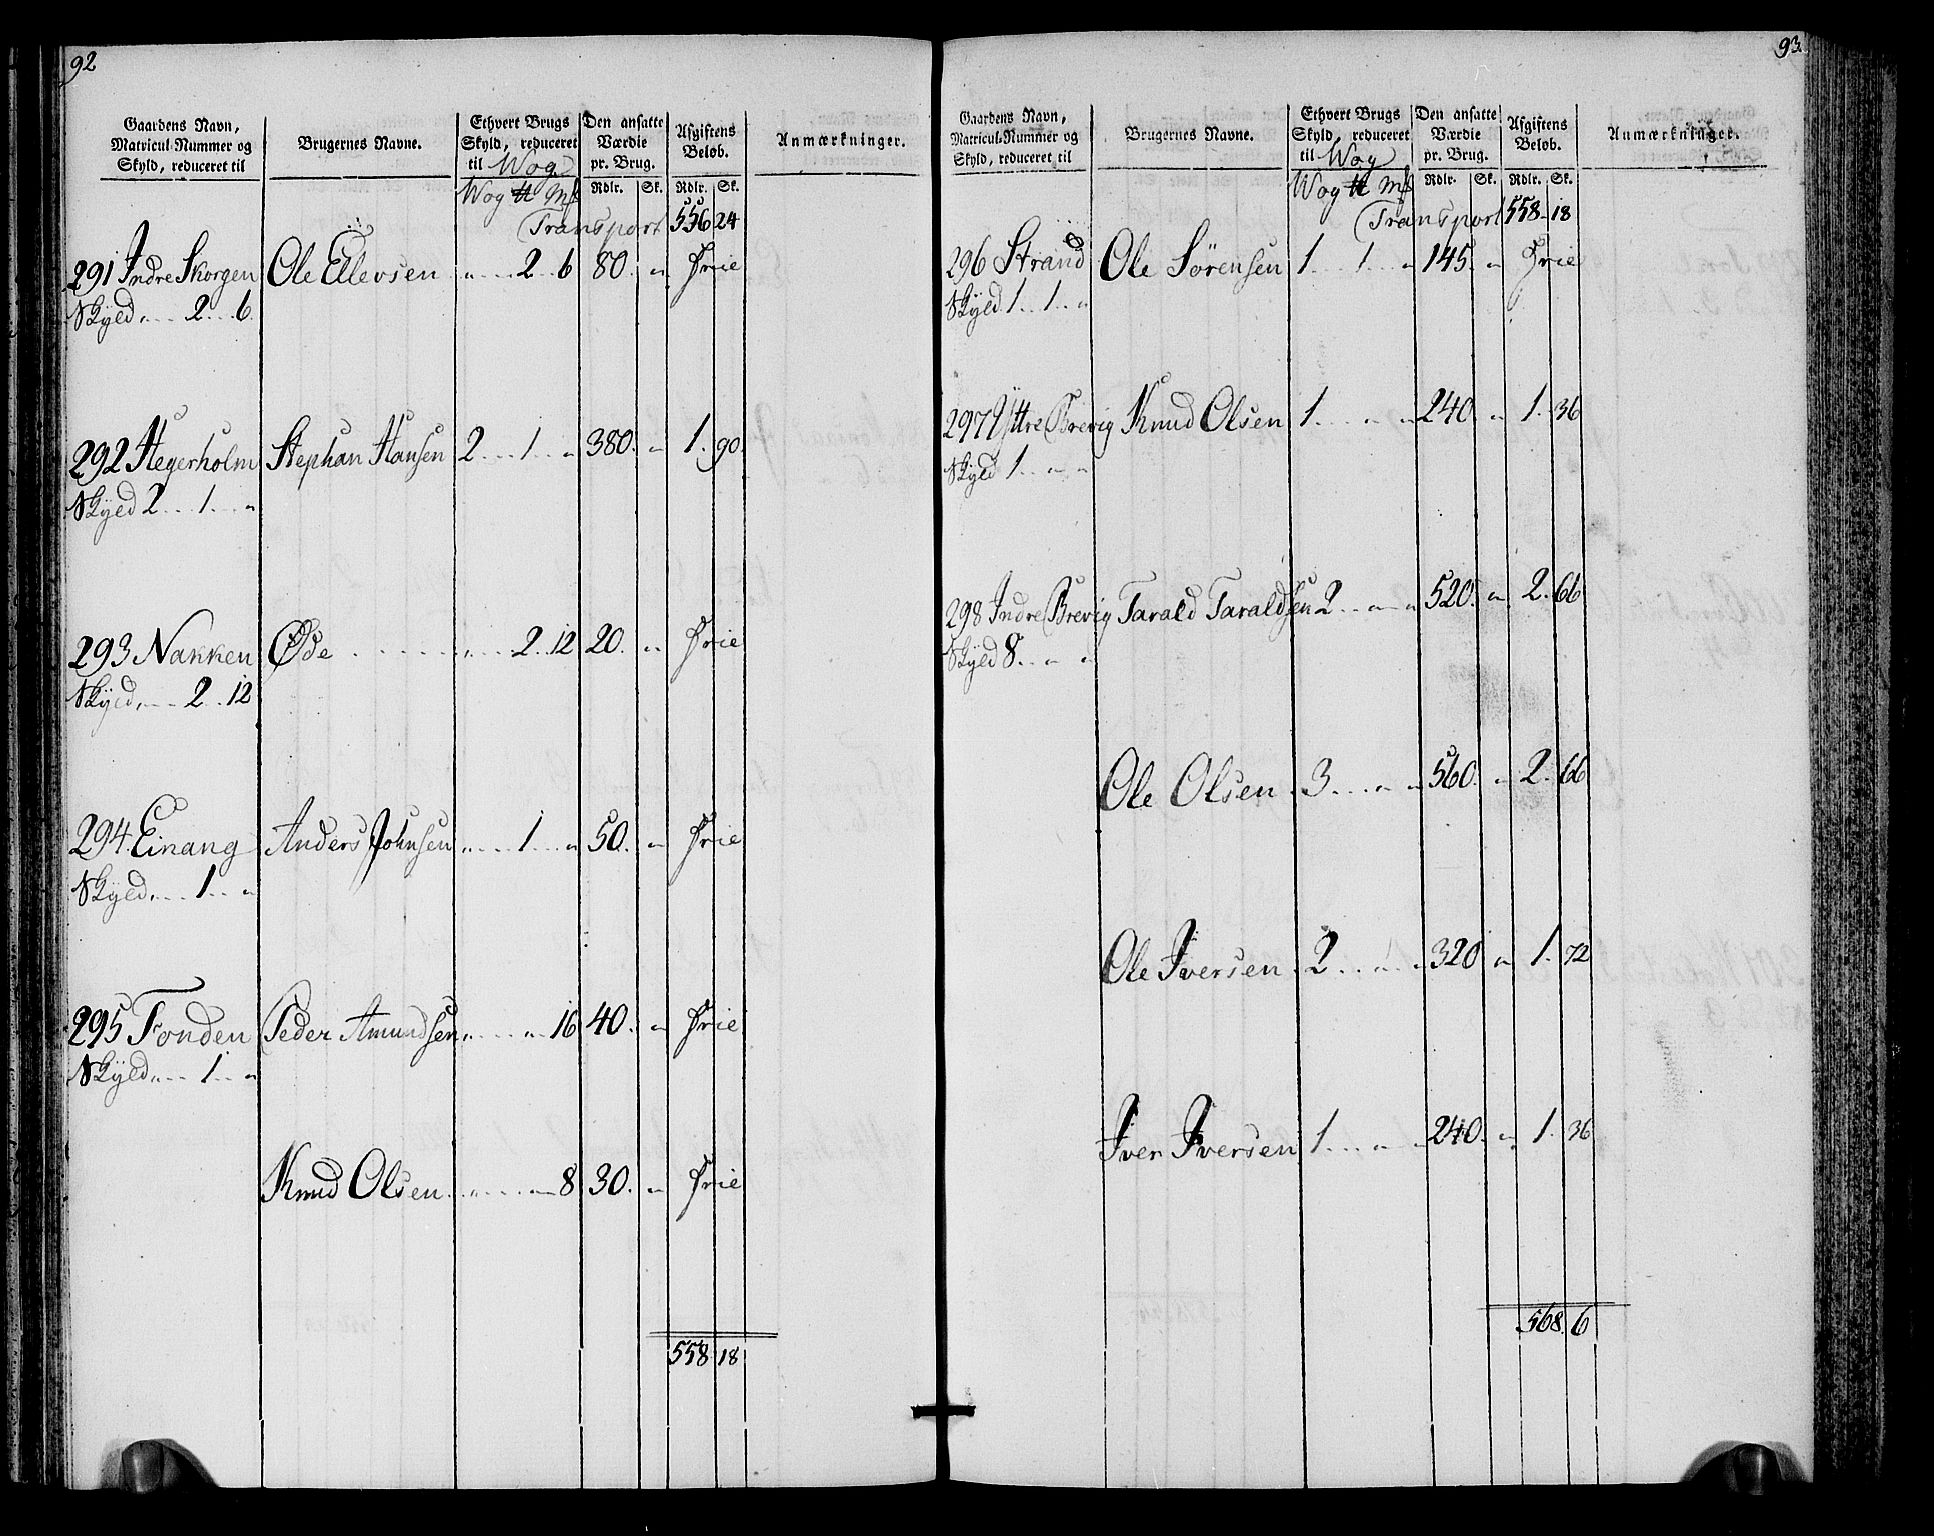 92
Gaardens Navn, Matricul-Nummer og Skyld, reduceret til | Brugernes Navne. | Ethvert Brugs Skyld, reduceret til Wog | Den ansatte Værdie pr. Brug. | Afgiftens Beløb. | Anmærkninger.
Wog ℔ Mk | Rdlr. | Sk. | Rdlr. | Sk.
Transport 556 24
291 Indre Skorgen | Ole Ellevsen | „ 2 6 | 80. | „ | Frie
Skyld „ 2 6.
292 Hegerholm | Stephan Hansen | 2 1 „ | 380. | „ | 1. | 90.
Skyld 2 1 „
293 Nakken | Øde | „ 2 12 | 20. | „ | Frie
Skyld „ 2 12
294. Einang | Anders Johnsen | „ 1 „ | 50. | „ | Frie
Skyld „ 1 „
295 Fonden | Peder Amundsen | „ „ 16 | 40. | „ | Frie
Skyld „ 1 „
Knud Olsen | „ „ 8 | 30. | „ | Frie
558 18
93.
Gaardens Navn, Matricul-Nummer og Skyld, reduceret til | Brugernes Navne. | Ethvert Brugs Skyld, reduceret til Wog | Den ansatte Værdie pr. Brug. | Afgiftens Beløb. | Anmærkninger.
Wog ℔ Mk | Rdlr. | Sk. | Rdlr. | Sk.
Transport 558 18
296 Strand | Ole Sörensen | 1 1 „ | 145. | „ | Frie
Skyld 1 1 „
297 Yttre Brevig | Knud Olsen | 1 „ „ | 240. | „ | 1. | 36
Skyld 1 „ „
298 Indre Brevig | Tarald Taraldsen | 2 „ „ | 520. | „ | 2. | 66
Skyld 8 „ „
Ole Olsen | 3 „ „ | 560. | „ | 2. | 66
Ole Iversen | 2 „ „ | 320 | „ | 1. | 72
Iver Iversen | 1 „ „ | 240. | „ | 1. | 36
568. 6